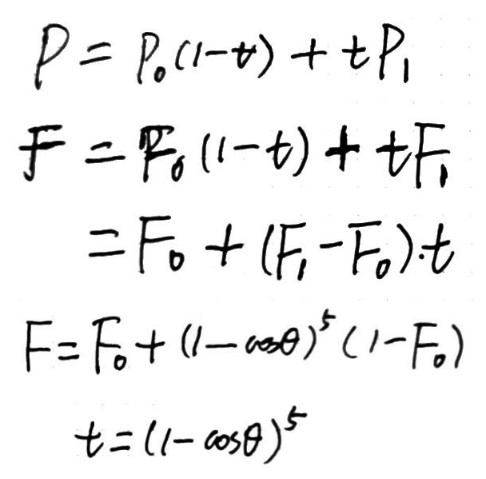 P = P₀(1-t) + tP₁
F = F₀(1-t) + tF₁
= F₀ + (F₁-F₀)·t
F = F₀ + (1-cosθ)⁵(1-F₀)
t = (1-cosθ)⁵